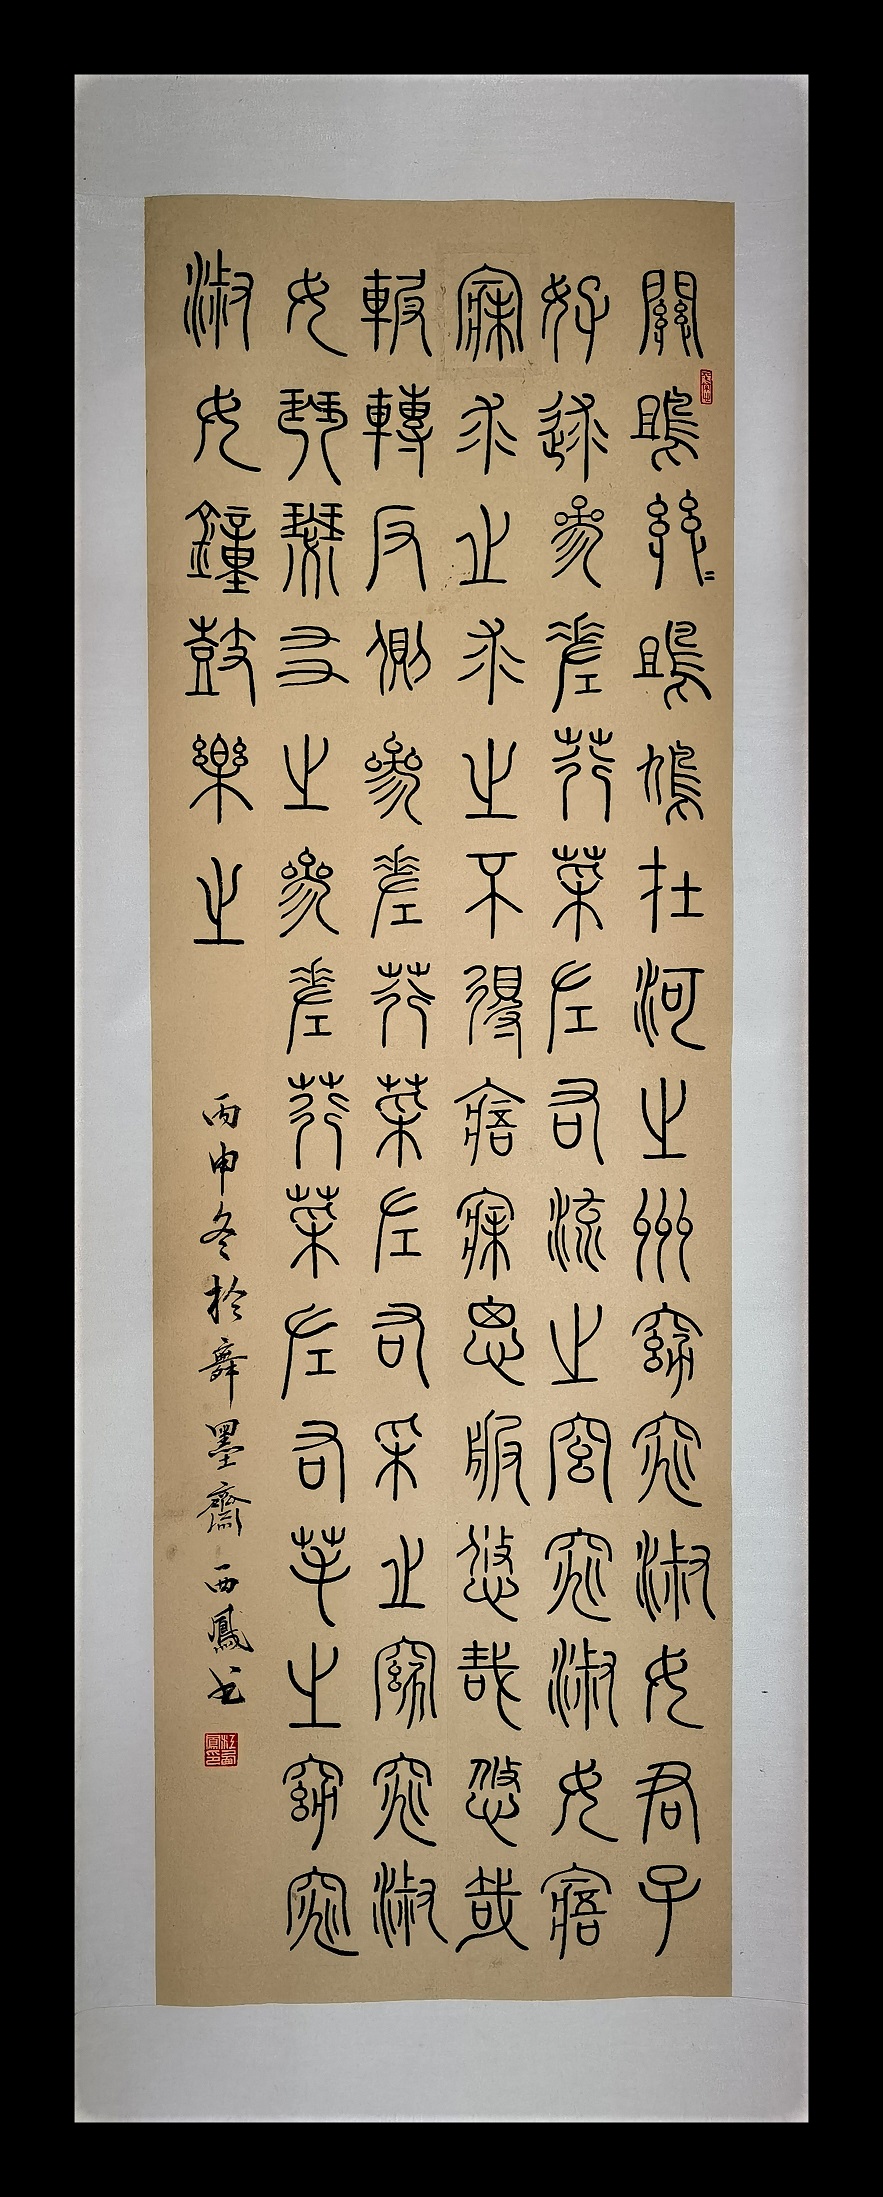 關鴡關〻鴡鳩在河之州窈窕淑女君子
好逑參差荇菜左右流之窈窕淑女寤
寐求之求之不得寤寐思服悠哉悠哉
輾轉反側參差荇菜左右采之窈窕淑
女琴瑟友之參差荇菜左右芼之窈窕
淑女鐘鼓樂之
丙申冬於舞墨齋西鳳書